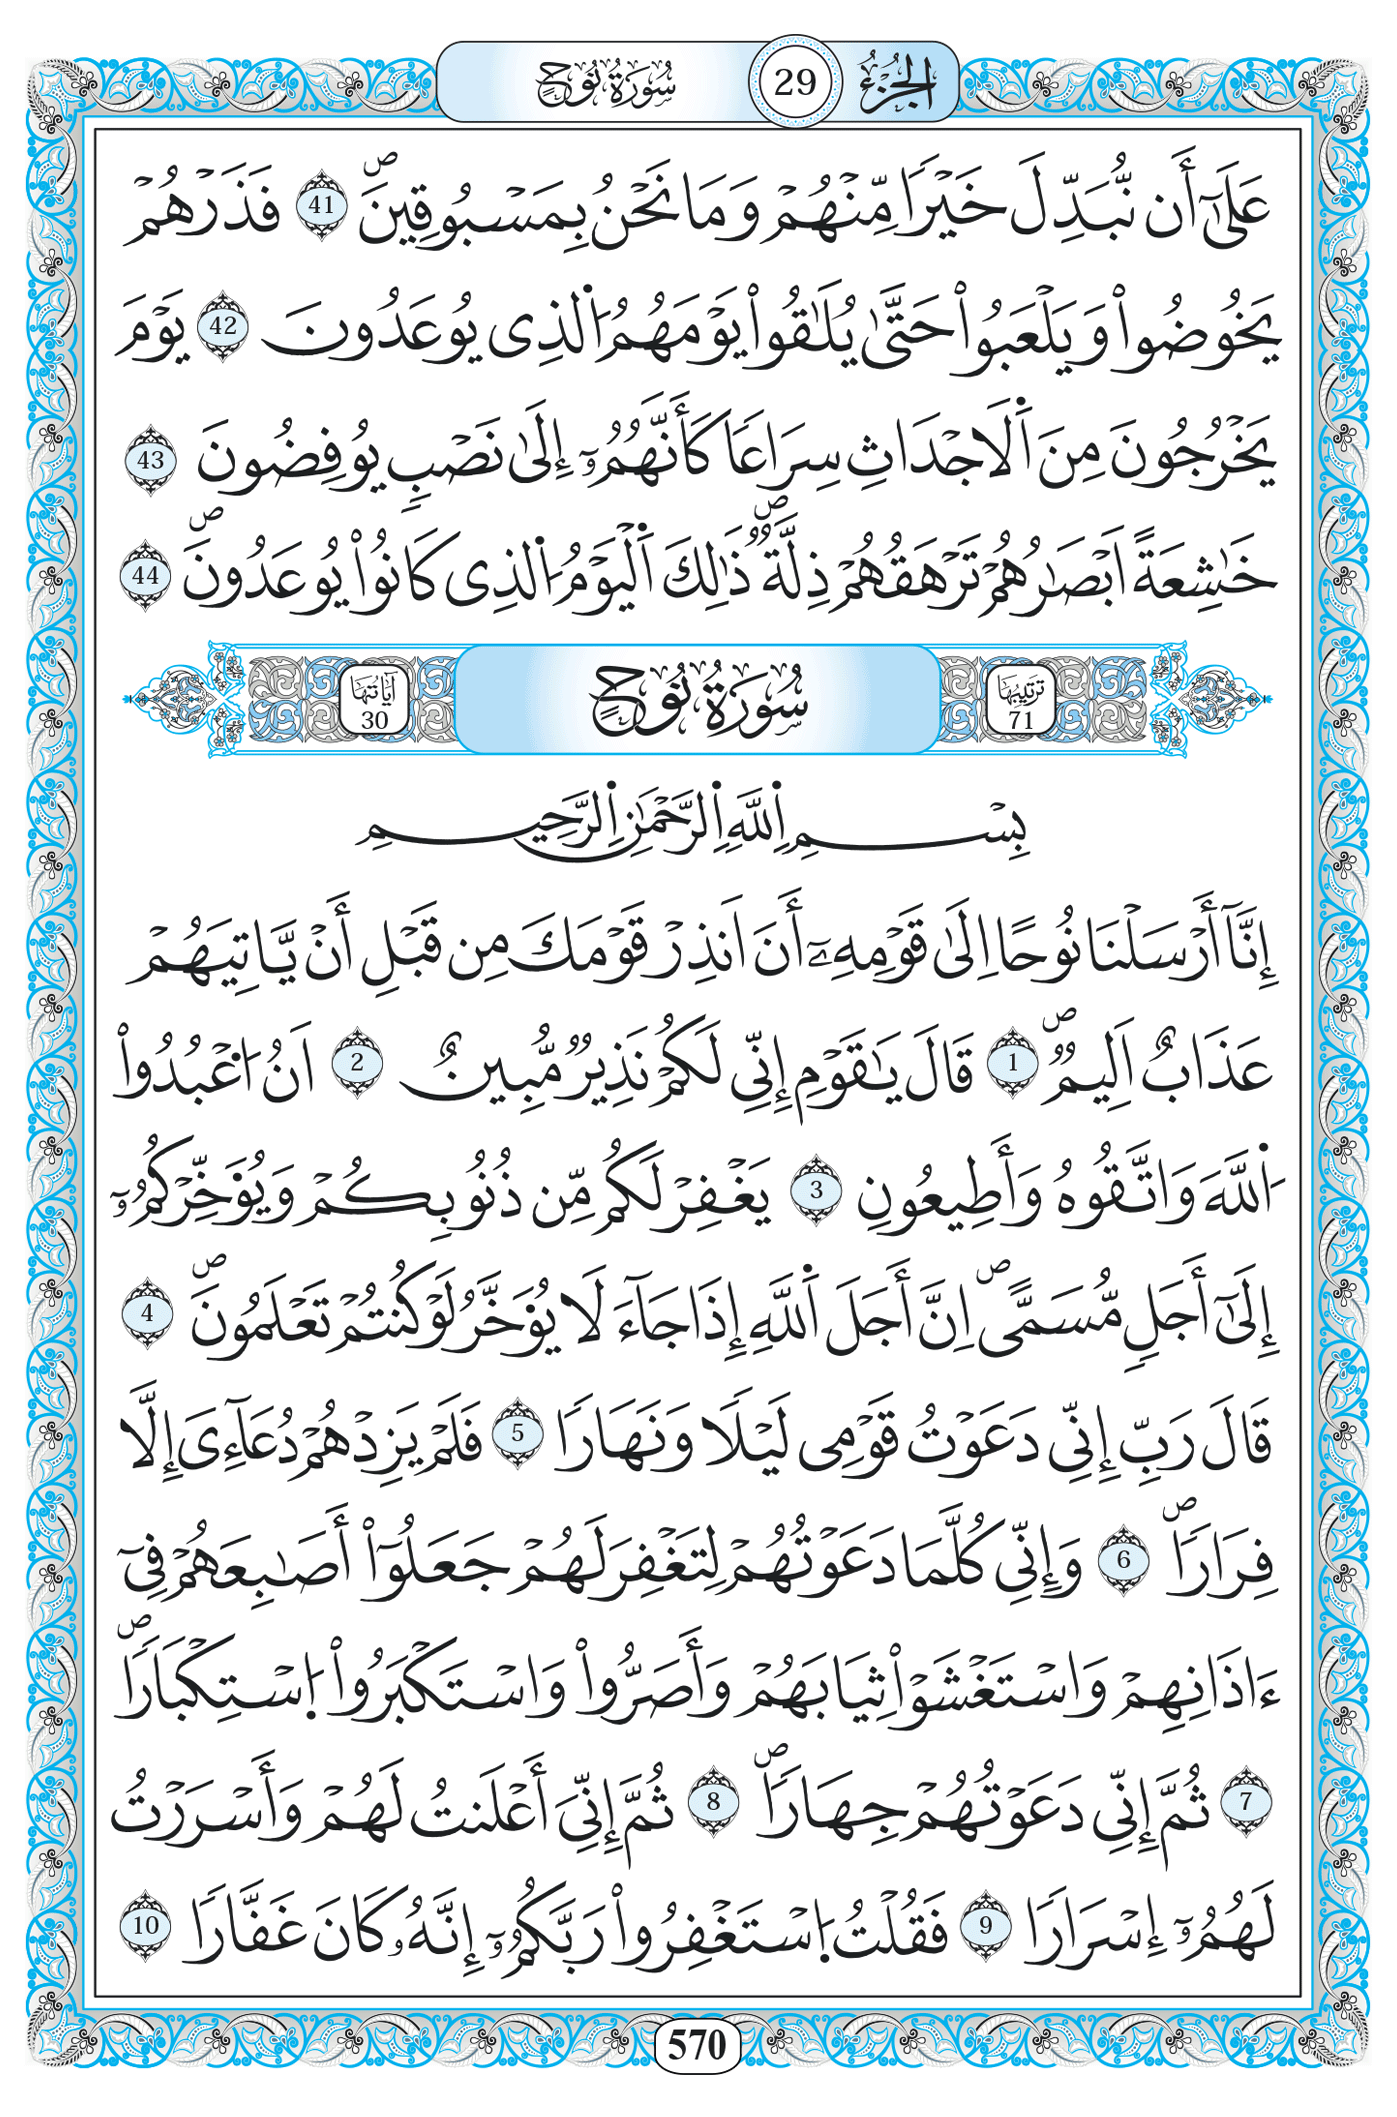 الجزء 29 سورة نوح
عَلَىٰٓ أَن نُّبَدِّلَ خَيْرًا مِّنْهُمْ وَمَا نَحْنُ بِمَسْبُوقِينَۖ 41 فَذَرْهُمْ
يَخُوضُواْ وَيَلْعَبُواْ حَتَّىٰ يُلَٰقُواْ يَوْمَهُمُ اُ۬لذِے يُوعَدُونَ 42 يَوْمَ
يَخْرُجُونَ مِنَ اَ۬لَاجْدَاثِ سِرَاعًا كَأَنَّهُمُۥٓ إِلَىٰ نَصْبٍ يُوفِضُونَ 43
خَٰشِعَةً اَبْصَٰرُهُمْ تَرْهَقُهُمْ ذِلَّةٞۖ ذَٰلِكَ اَ۬لْيَوْمُ اُ۬لذِے كَانُواْ يُوعَدُونَۖ 44
ترتيبها 71 سورة نوح آياتها 30
بِسْمِ اِ۬للَّهِ اِ۬لرَّحْمَٰنِ اِ۬لرَّحِيمِ
إِنَّآ أَرْسَلْنَا نُوحًا اِلَىٰ قَوْمِهِۦٓ أَنَ اَنذِرْ قَوْمَكَ مِن قَبْلِ أَنْ يَّاتِيَهُمْ
عَذَابٌ اَلِيمٞۖ 1 قَالَ يَٰقَوْمِ إِنِّي لَكُمْ نَذِيرٞ مُّبِينٌ 2 اَنُ اُ۟عْبُدُواْ
اُ۬للَّهَ وَاتَّقُوهُ وَأَطِيعُونِ 3 يَغْفِرْ لَكُم مِّن ذُنُوبِكُمْ وَيُؤَخِّرْكُمُۥٓ
إِلَىٰٓ أَجَلٖ مُّسَمًّىۖ اِنَّ أَجَلَ اَ۬للَّهِ إِذَا جَآءَ لَا يُؤَخَّرُ لَوْ كُنتُمْ تَعْلَمُونَۖ 4
قَالَ رَبِّ إِنِّي دَعَوْتُ قَوْمِي لَيْلًا وَنَهَارًا 5 فَلَمْ يَزِدْهُمْ دُعَآءِيَ إِلَّا
فِرَارًاۖ 6 وَإِنِّي كُلَّمَا دَعَوْتُهُمْ لِتَغْفِرَ لَهُمْ جَعَلُوٓاْ أَصَٰبِعَهُمْ فِےٓ
ءَاذَانِهِمْ وَاسْتَغْشَوْاْ ثِيَابَهُمْ وَأَصَرُّواْ وَاسْتَكْبَرُواْ اُ۪سْتِكْبَارًاۖ
7 ثُمَّ إِنِّي دَعَوْتُهُمْ جِهَارًاۖ 8 ثُمَّ إِنِّيَ أَعْلَنتُ لَهُمْ وَأَسْرَرْتُ
لَهُمُۥٓ إِسْرَارًا 9 فَقُلْتُ اُ۪سْتَغْفِرُواْ رَبَّكُمُۥٓ إِنَّهُۥ كَانَ غَفَّارًا 10
570